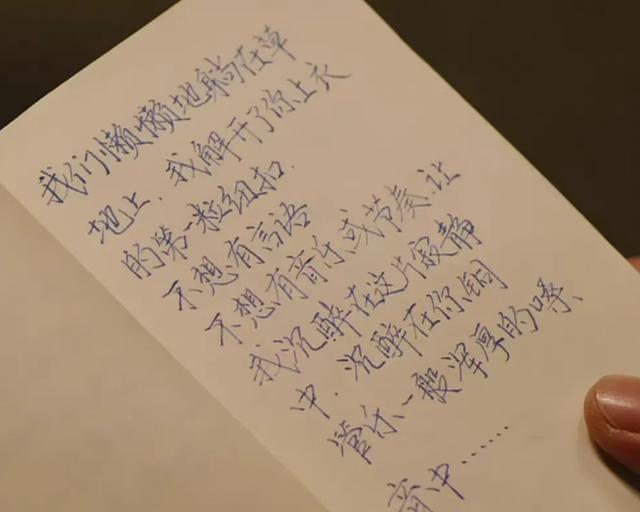 我们懒懒地躺在草
地上．我解开了你上衣
的第一粒纽扣．
不想有言语
不想有音乐或节奏．让
我沉醉在这片寂静
中．沉醉在你铜
管乐一般浑厚的嗓
音中……